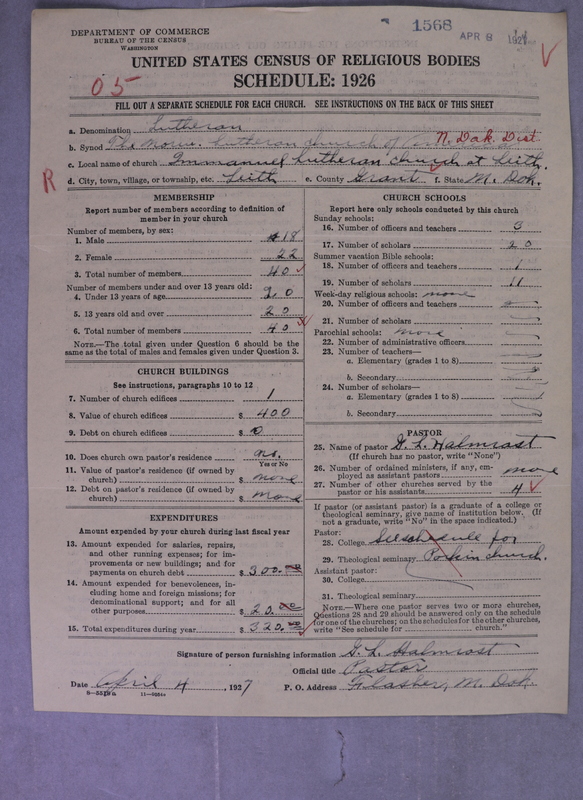 1568
APR 8 1927
DEPARTMENT OF COMMERCE
BUREAU OF THE CENSUS
WASHINGTON
UNITED STATES CENSUS OF RELIGIOUS BODIES
SCHEDULE: 1926
05
FILL OUT A SEPARATE SCHEDULE FOR EACH CHURCH. SEE INSTRUCTIONS ON THE BACK OF THIS SHEET
a. Denomination Lutheran
b. Synod The Norw. Lutheran Church of N. Dak. Dist
c. Local name of church Immanuel Lutheran Church at Leith.
R d. City, town, village, or township, etc. Leith e. County Grant f. State N. Dak.
MEMBERSHIP
Report number of members according to definition of
member in your church
Number of members, by sex:
1. Male 18
2. Female 22
3. Total number of members 40
Number of members under and over 13 years old:
4. Under 13 years of age 20
5. 13 years old and over 20
6. Total number of members 40
NOTE.—The total given under Question 6 should be
same as the total of males and females given under Question 3.
CHURCH BUILDINGS
See instructions, paragraphs 10 to 12
7. Number of church edifices 1
8. Value of church edifices $ 400
9. Debt on church edifices $ 0
10. Does church own pastor's residence? no.
Yes or No
11. Value of pastor's residence (if owned by
church) $ none
12. Debt on pastor's residence (if owned by
church) $ none
EXPENDITURES
Amount expended by your church during last fiscal year
13. Amount expended for salaries, repairs,
and other running expenses; for im-
provements or new buildings; and for
payments on church debt $ 300.00
14. Amount expended for benevolences, in-
cluding home and foreign missions; for
denominational support; and for all
other purposes $ 20.00
15. Total expenditures during year $ 320.00
CHURCH SCHOOLS
Report here only schools conducted by this church
Sunday schools:
16. Number of officers and teachers 3
17. Number of scholars 20
Summer vacation Bible schools:
18. Number of officers and teachers 1
19. Number of scholars 11
Week-day religious schools: none
20. Number of officers and teachers
21. Number of scholars
Parochial schools: none
22. Number of administrative officers
23. Number of teachers—
a. Elementary (grades 1 to 8)
b. Secondary
24. Number of scholars—
a. Elementary (grades 1 to 8)
b. Secondary
PASTOR
25. Name of pastor G. L. Halmrast
(If church has no pastor, write "None")
26. Number of ordained ministers, if any, em-
ployed as assistant pastors none
27. Number of other churches served by the
pastor or his assistants 4
If pastor (or assistant pastor) is a graduate of a college or
theological seminary, give name of institution below. (If
not a graduate, write "No" in the space indicated.)
Pastor:
28. College See schedule for
29. Theological seminary church.
Assistant pastor:
30. College
31. Theological seminary
NOTE.—Where one pastor serves two or more churches,
Questions 28 and 29 should be answered only on the schedule
for one of the churches; on the schedules for the other churches,
write "See schedule for church."
Signature of person furnishing information G. L. Halmrast
Official title Pastor
Date April 4, 1927 P. O. Address Flasher, N. Dak.